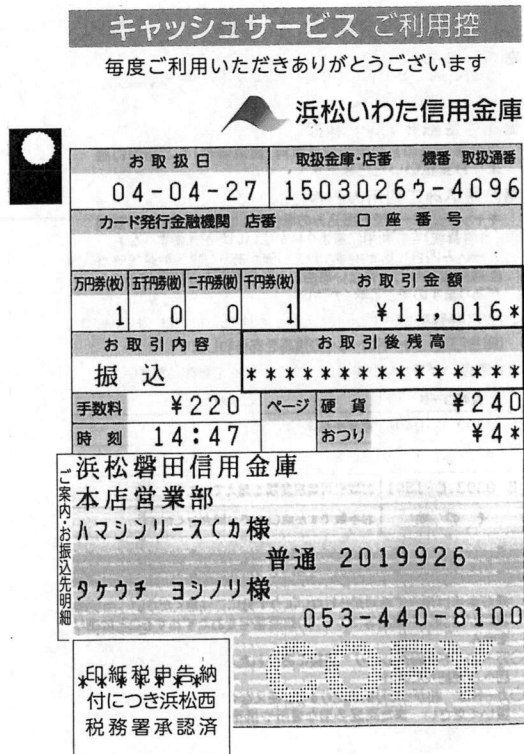 キャッシュサービス ご利用控
毎度ご利用いただきありがとうございます
浜松いわた信用金庫
お取扱日 取扱金庫・店番 機番 取扱通番
04-04-27 1503026ウ-4096
カード発行金融機関 店番 口座番号
万円券(枚) 五千円券(枚) 二千円券(枚) 千円券(枚) お取引金額
1 0 0 1 ¥11,016*
お取引内容 お取引後残高
振込 **************
手数料 ¥220 ページ 硬貨 ¥240
時刻 14:47 おつり ¥4*
ご案内・お振込先明細
浜松磐田信用金庫
本店営業部
ハマシンリース(カ様
普通 2019926
タケウチ ヨシノリ様
053-440-8100
COPY
印紙税申告納
付につき浜松西
税務署承認済